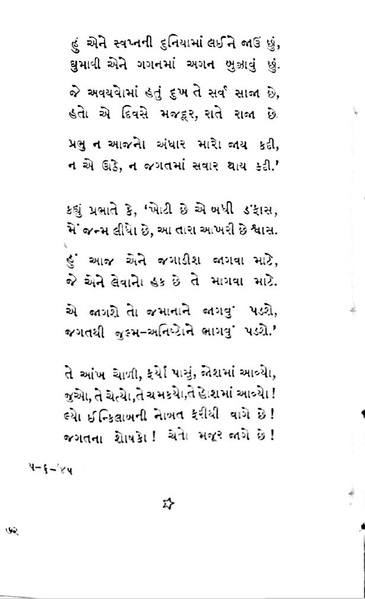 હું એને સ્વપ્નની દુનિયામાં લઈને જાઉં છું,
ઘુમાવી એને ગગનમાં અગન બુઝાવું છું.
જે અવયવોમાં હતું દુખ તે સર્વ સાજા છે,
હતો એ દિવસે મજદૂર, રાતે રાજા છે
પ્રભુ ન આજનો અંધાર મારો જાય કદી,
ન એ ઊઠે, ન જગતમાં સવાર થાય કદી.'
કહ્યું પ્રભાતે કે, 'ખોટી છે એ બધી ડંફાસ,
મેં જન્મ લીધો છે, આ તારા આખરી છે શ્વાસ.
હું આજ એને જગાડીશ જાગવા માટે,
જે એને લેવાનો હક છે તે માગવા માટે.
એ જાગશે તો જમાનાને જાગવું પડશે,
જગતથી જુલ્મ-અનિષ્ટોને ભાગવું પડશે.'
તે આંખ ચોળી, ફર્યો પાસું, જોશમાં આવ્યો,
જુઓ, તે ચેત્યો, તે ચમક્યો, તે હોશમાં આવ્યો!
લ્યો ઈન્કિલાબની નોબત ફરીથી વાગે છે!
જગતના શોષકો! ચેતો મજૂર જાગે છે!
૫-૬-'૪૫
૫૨